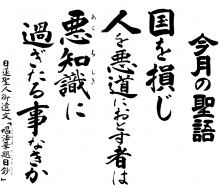 今月の聖語
国を損じ
人を悪道におとす者は
悪知識に
あくちしき
過ぎたる事なきか
日蓮聖人御遺文「唱法華題目鈔」